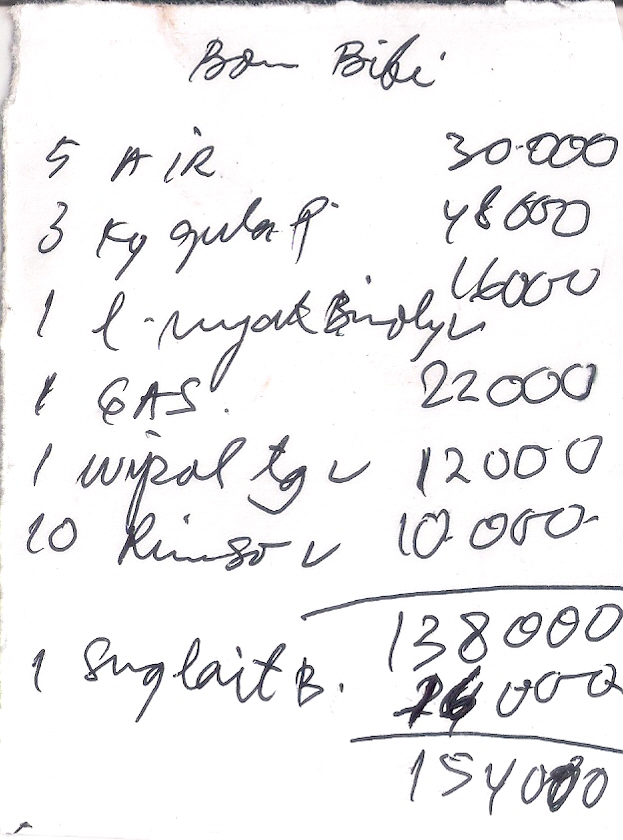 Bon Bibi
5 AIR 30.000
3 Kg gula P 48000
1 l. myak Bimoly v 16000
1 GAS. 22000
1 wipol tg v 12000
10 Rinso v 10.000
138000
1 Sunlait B. 16000
154000